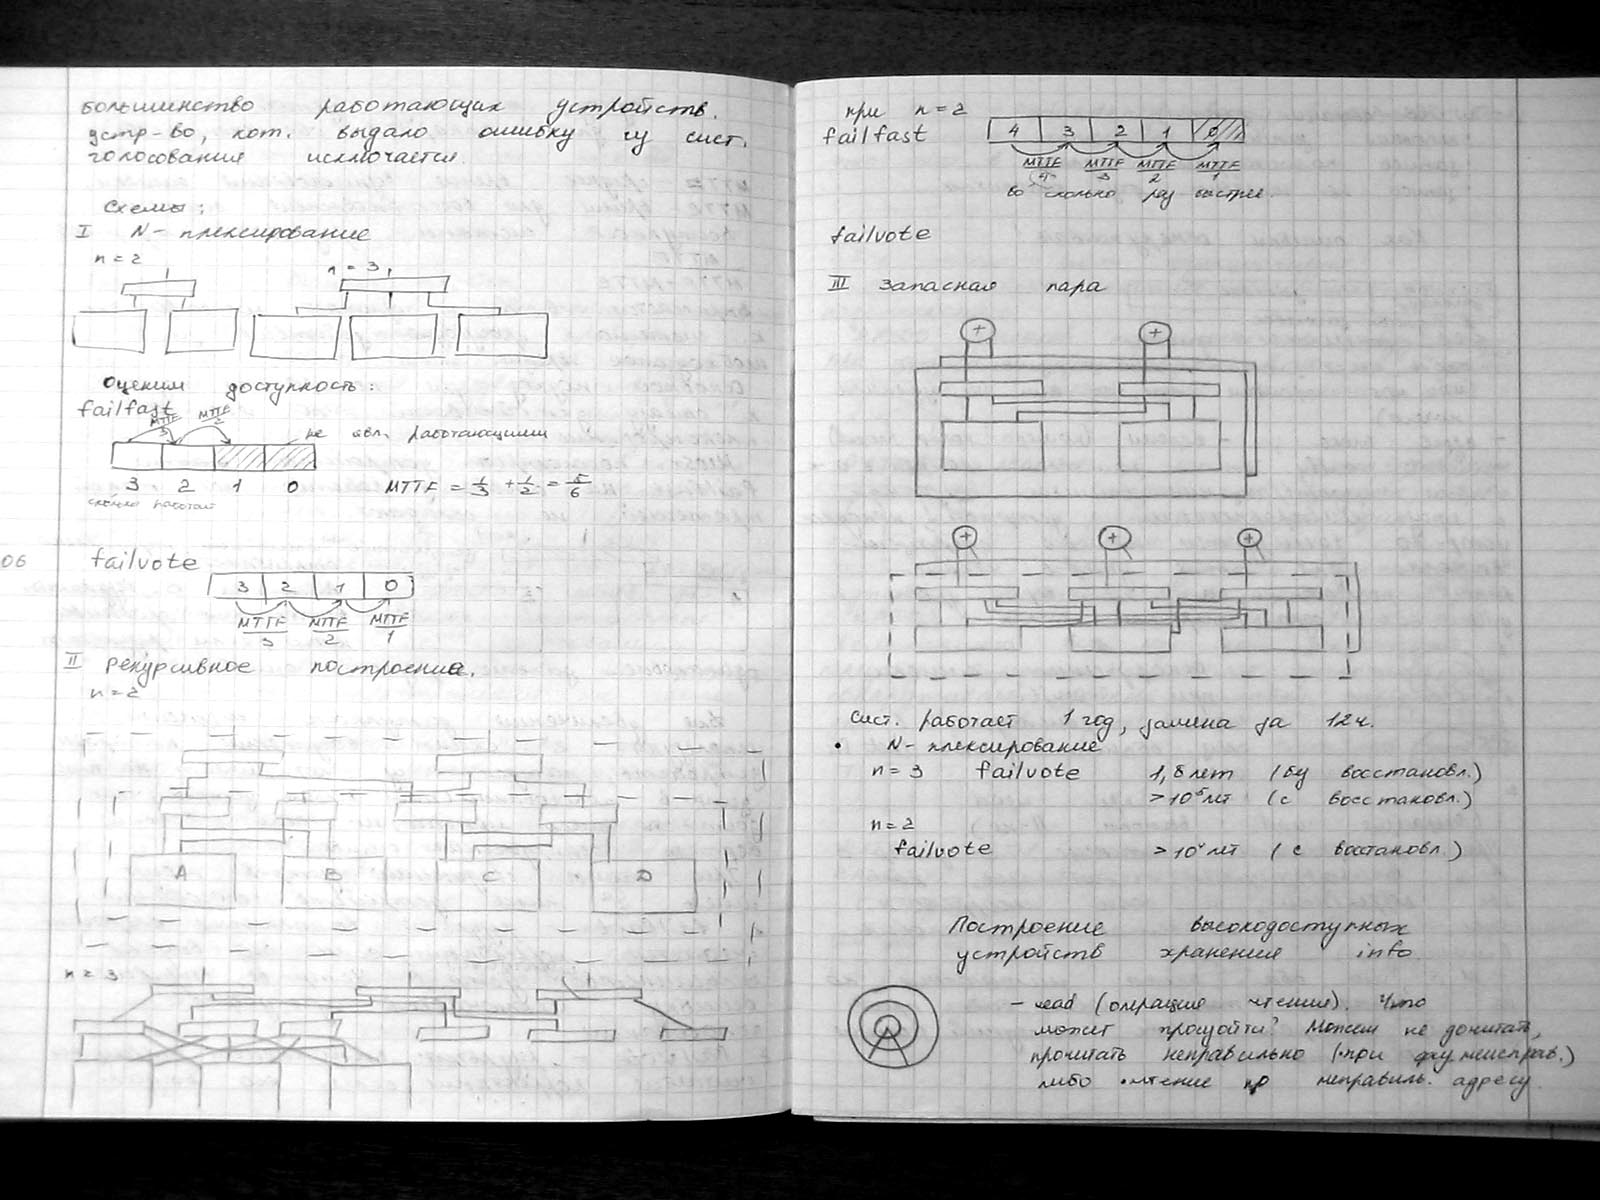 большинство работающих устройств.
устр-во, кот. выдало ошибку из сист.
голосования исключается.
Схемы:
I N-плексирование
n=2
n=3
Оценим доступность:
failfast
MTTF/3 MTTF/2
не явл. работающими
3 2 1 0
сколько работает
MTTF = 1/3 + 1/2 = 5/6
06
failvote
3 2 1 0
MTTF/3 MTTF/2 MTTF/1
II Рекурсивное построение.
n=2
A B C D
n=3
при n=2
failfast
4 3 2 1 0
MTTF/4 MTTF/3 MTTF/2 MTTF/1
во сколько раз быстрее.
failvote
III Запасная пара
+ +
+ + +
сист. работает 1 год, замена за 12ч.
• N-плексирование
n=3 failvote 1,8 лет (без восстановл.)
лет (с восстановл.)
n=2
failvote лет (с восстановл.)
Построение высокодоступных
устройств хранения info
- read (операция чтения). Что
может произойти? Можем не дочитать,
прочитать неправильно (при физ. неисправ.)
либо чтение по неправиль. адресу.